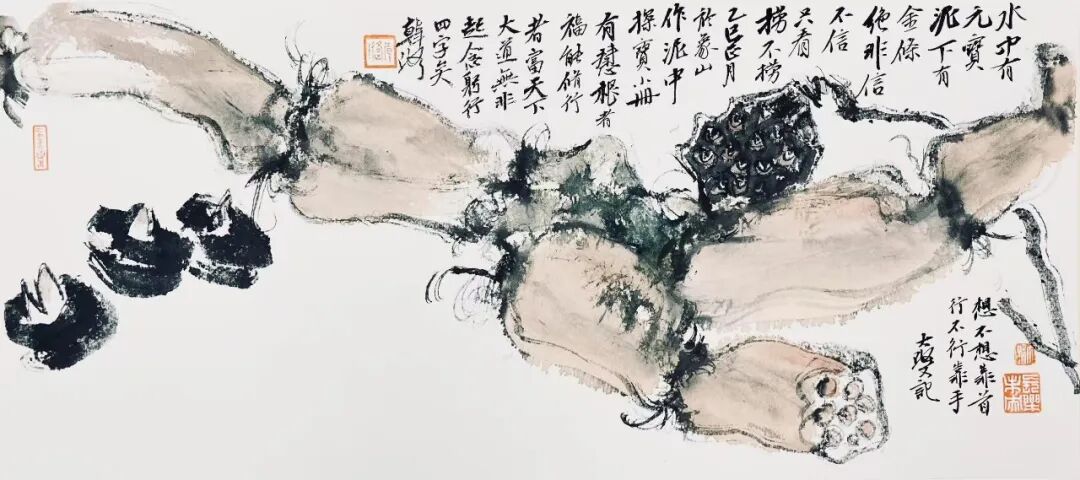 水中有
元寶
泥下有
金條
絶非信
不信
只看
撈不撈
乙巳正月
於象山
作泥中
探寶小冊
有慧根者
福能脩行
者富天下
大道無非
起念躬行
四字矣
韓璐
想不想靠首
行不行靠手
大璐又記